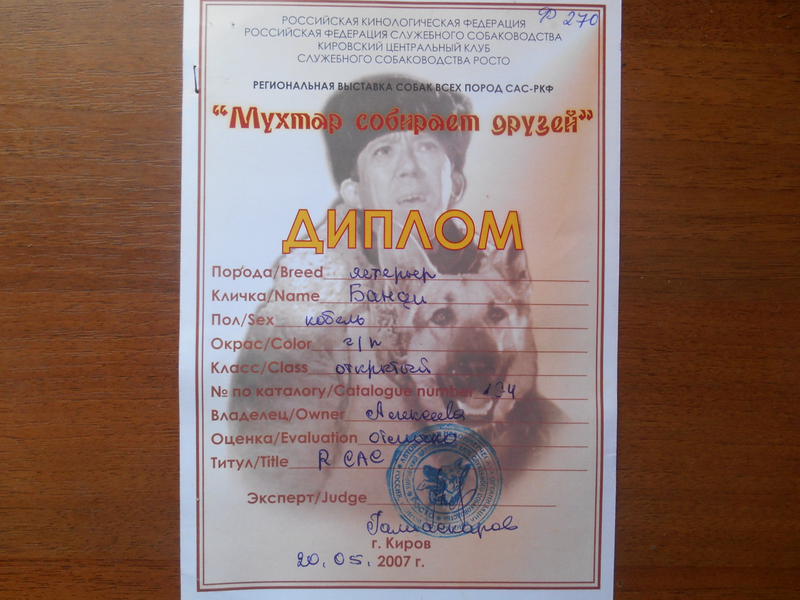 Ф 270
РОССИЙСКАЯ КИНОЛОГИЧЕСКАЯ ФЕДЕРАЦИЯ
РОССИЙСКАЯ ФЕДЕРАЦИЯ СЛУЖЕБНОГО СОБАКОВОДСТВА
КИРОВСКИЙ ЦЕНТРАЛЬНЫЙ КЛУБ
СЛУЖЕБНОГО СОБАКОВОДСТВА РОСТО
РЕГИОНАЛЬНАЯ ВЫСТАВКА СОБАК ВСЕХ ПОРОД САС-РКФ
“Мухтар собирает друзей”
ДИПЛОМ
Порода/Breed ягтерьер
Кличка/Name Банди
Пол/Sex кобель
Окрас/Color ч/п
Класс/Class открытый
№ по каталогу/Catalogue number 134
Владелец/Owner Алексеева
Оценка/Evaluation отлично
Титул/Title R CAC
Эксперт/Judge
г. Киров
20.05. 2007 г.